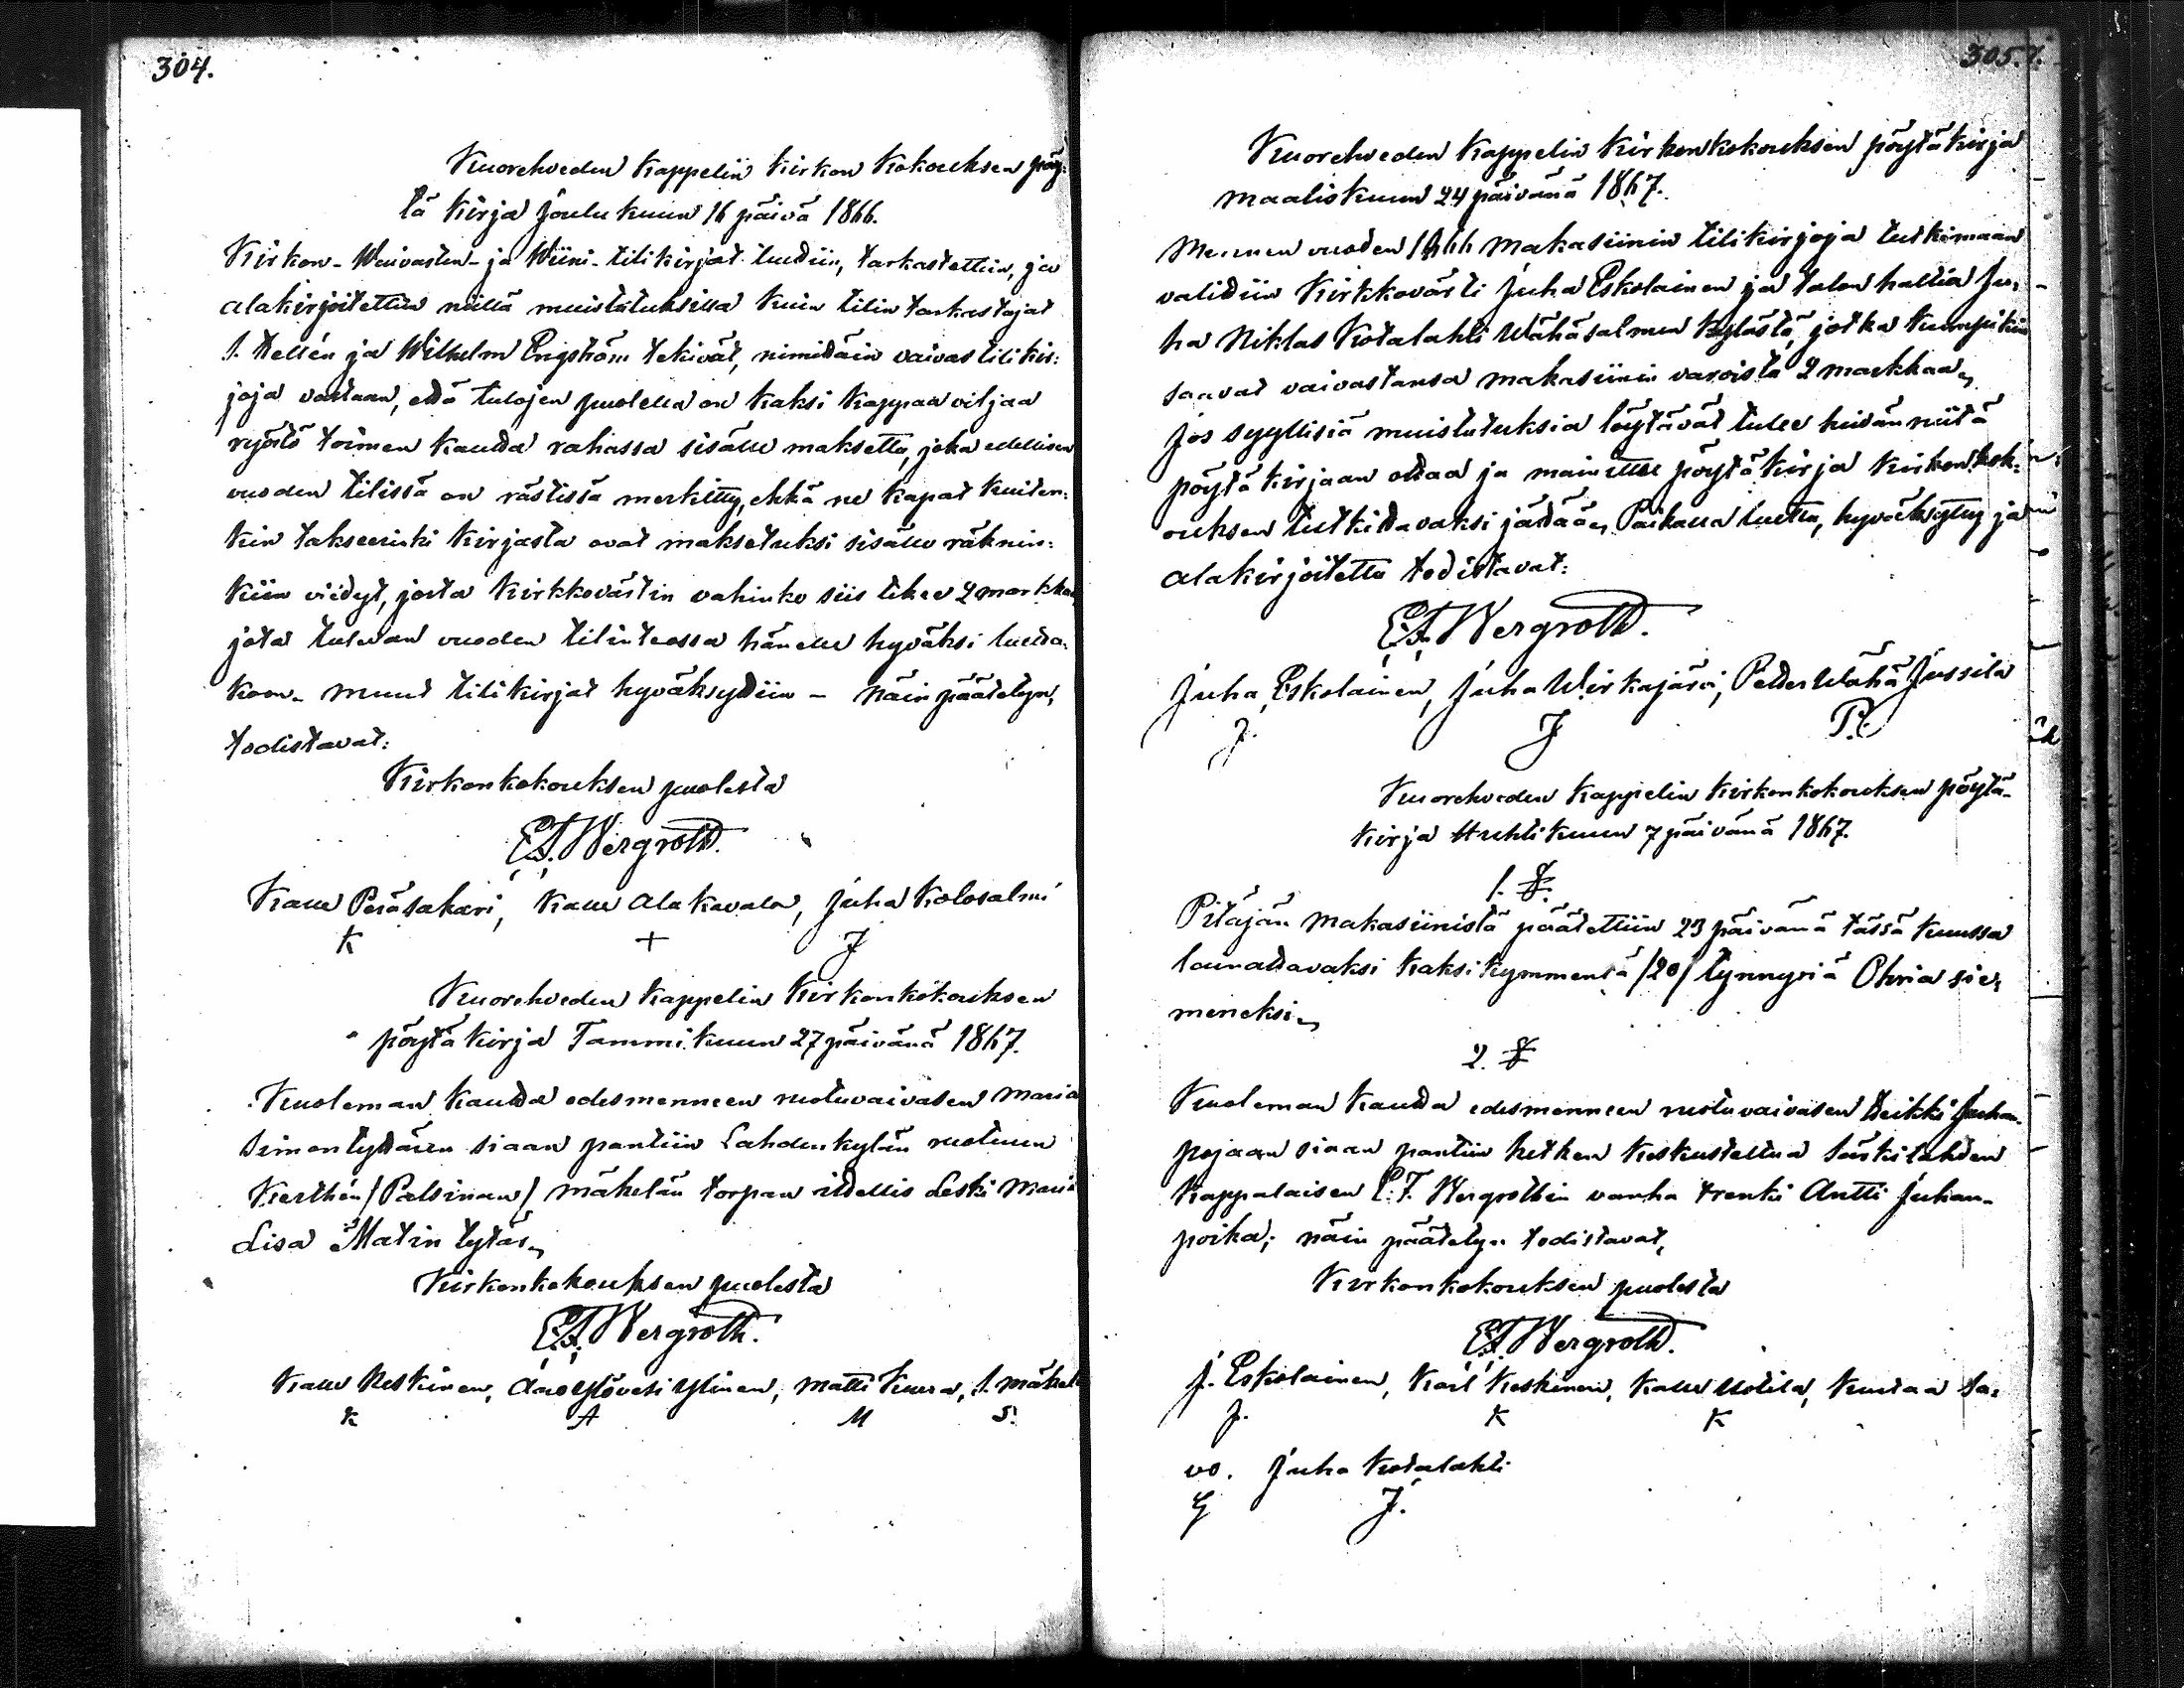 304.
Kuorehveden Kappelin Kirkon Kokouksen pöy=
tä Kirja Joulukuun 16 päivä 1866.
Kirkon- Waivasten- ja Wiini- tilikirjat luettiin, tarkastettiin, ja
alakirjoitettiin niillä muistutuksilla kuin tilin tarkastajat
S. Hellén ja Wilhelm Engström tekivät, nimittäin vaivastilikir=
joja vastaan, että tulojen puolella on kaksi kappaa viljaa
ryöstö toimen kautta rahassa sisälle maksettu, joka edellisen
vuoden tilissä on rästissä merkitty, ehkä ne kapat kuiten=
kin takseerinki kirjasta ovat maksetuksi sisälle räknin=
kiin viedyt, josta Kirkkovärtin vahinko siis tekee 2 markkaa
jota tulevan vuoden tilinteossa hänelle hyväksi luetta=
koon- muut tilikirjat hyväksyttiin - näin päätetyn,
todistavat:
Kirkonkokouksen puolesta
E.F. Wergroth.
Kalle Peräsakari, Kalle Alakavala, Juha Kolosalmi
K + J
Kuorehveden Kappelin Kirkonkokouksen
pöytäkirja Tammikuun 27 päivänä 1867.
Kuoleman kautta edesmenneen ruotuvaivasen Maria
Simontyttären siaan pantiin Lahdenkylän ruotuun
Kerthén /Palsinan/ Mäkelän torpan itellis Leski Maria
Lisa Matin tytär,
Kirkonkokouksen puolesta
E.F. Wergroth.
Kalle Keskinen, Aaro Ylövesi Ylinen, Matti Kuura, S. Mäkel
K A M S.
305.
Kuorehveden Kappelin Kirkonkokouksen pöytäkirja
Maaliskuun 24 päivänä 1867.
Mennen vuoden 1866 Makasiinin tilikirjoja tutkimaan
valittiin Kirkkovärti Juha Eskolainen ja talon haltia Ju=
ha Niklas Kotalahti Wähäsalmen kylästä, jotka kumpikin
saavat vaivastansa makasiinin varoista 2 markkaa,
Jos syyllisiä muistutuksia löytävät tulee heidän niitä
pöytäkirjaan ottaa ja mainittu pöytäkirja kirkonkok=
ouksen tutkittavaksi jättää, Paikalla luettu, hyväksytty ja
alakirjoitettu todistavat:
E.F. Wergroth.
Juha Eskolainen, Juha Wirkajärvi, Petter Wähä Jussila
J. J P.
Kuorehveden Kappelin Kirkonkokouksen pöytä-
kirja Huhtikuun 7 päivänä 1867.
1. §.
Pitäjän Makasiinista päätettiin 23 päivänä tässä kuussa
lainattavaksi kaksikymmentä /20/ tynnyriä Ohria sie=
meneksi,
2. §
Kuoleman kautta edesmenneen ruotuvaivasen Heikki Juhan=
pojaan siaan pantiin hetken keskusteltua Särkilahden
Kappalaisen E.F. Wergrothin vanha trenki Antti Juhan-
poika; näin päätetyn todistavat,
Kirkonkokouksen puolesta
E.F. Wergroth.
J. Eskolainen, Karl Keskinen, Kalle Uotila, Kustaa Sa=
J. K K
vo. Juha Kotalahti
G J.